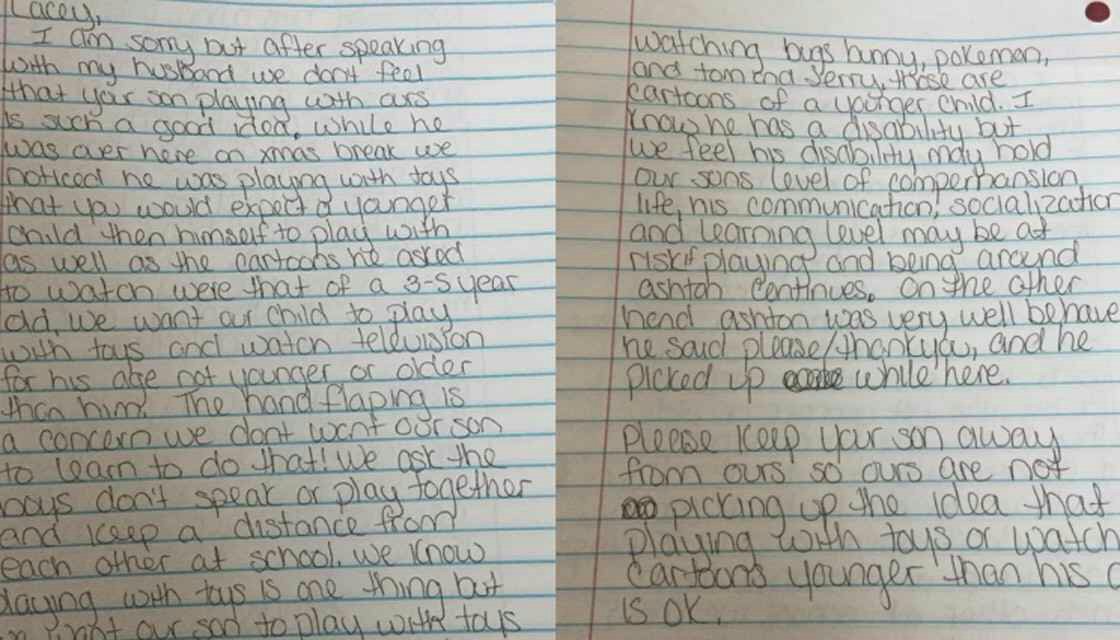 Lacey,
I am sorry but after speaking
with my husband we dont feel
that your son playing with ours
is such a good idea. while he
was over here on xmas break we
noticed he was playing with toys
that you would expect a younger
child then himself to play with
as well as the cartoons he asked
to watch were that of a 3-5 year
old. we want our child to play
with toys and watch television
for his age not younger or older
than him. The hand flaping is
a concern we dont want our son
to learn to do that! we ask the
boys don't speak or play together
and keep a distance from
each other at school. we know
playing with toys is one thing but
want our son to play with toys
watching bugs bunny, pokemon,
and tom and Jerry, those are
cartoons of a younger child. I
know he has a disability but
we feel his disability may hold
our sons level of comperhansion
life, his communication, socialization
and learning level may be at
risk if playing and being around
ashton continues. on the other
hend ashton was very well behave
he said please/thankyou, and he
picked up while here.
Please keep your son away
from ours so ours are not
picking up the idea that
playing with toys or watch
cartoons younger than his
is ok.